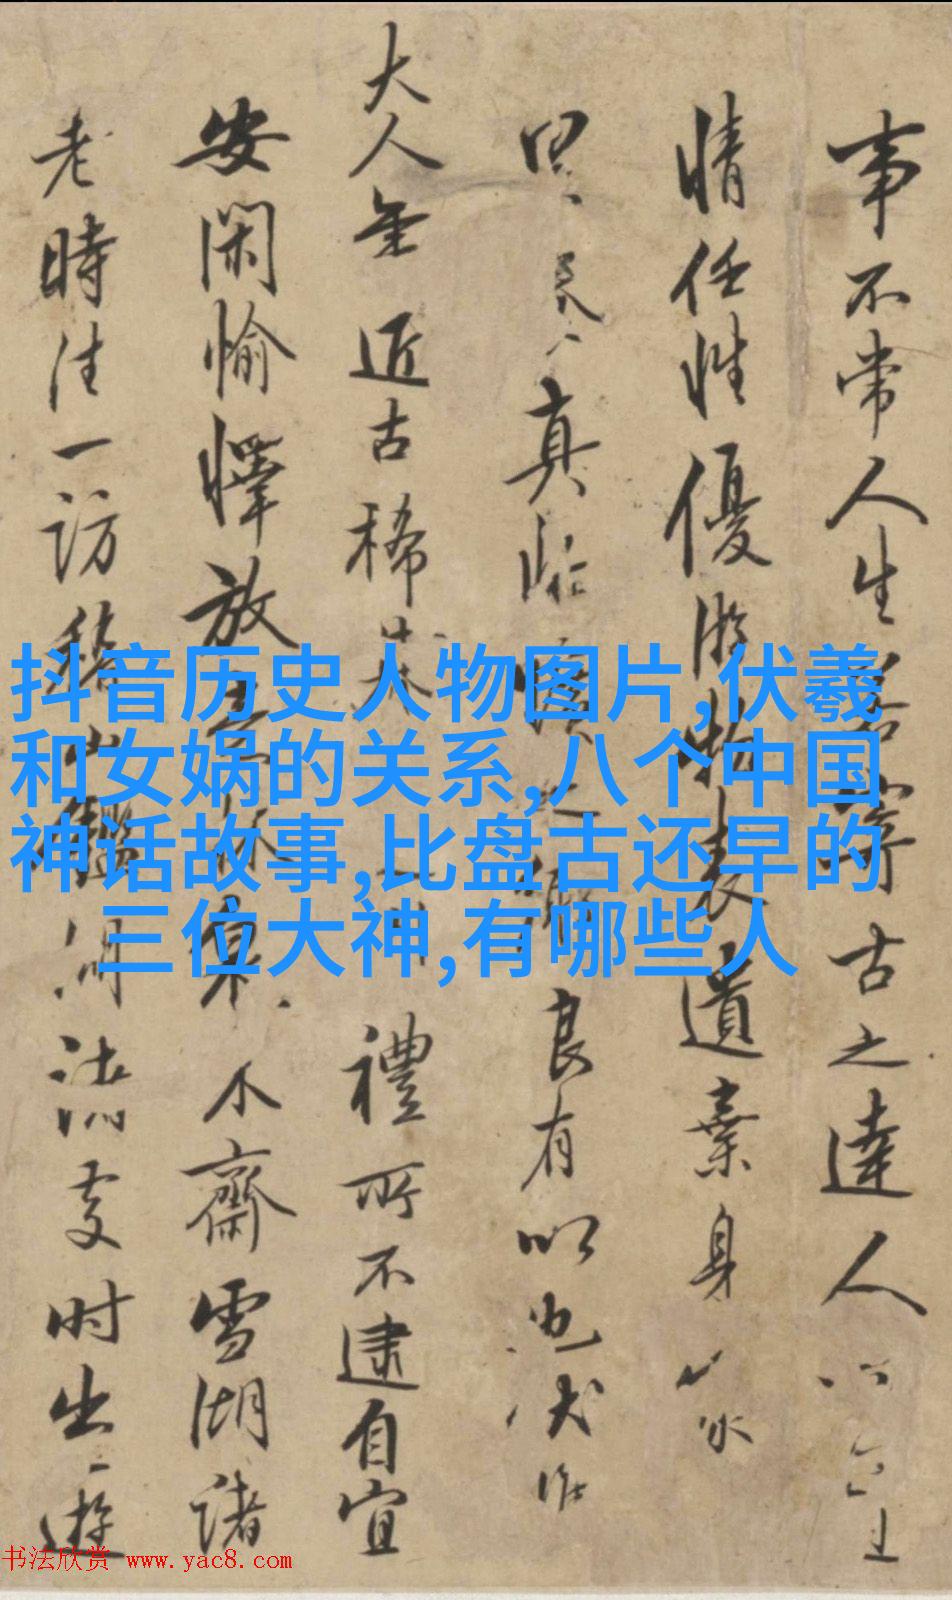 事不常人生若寄古之達人
情任性優游物表遺棄身
真 良有以也伏惟
大人年近古稀 禮所不逮自宜
安閑愉懌放 林泉木齋雪湖諸
老時往一訪稽山鑑湖諸處时出一遊
抖音历史人物图片,伏羲
和女娲的关系,八个中国
神话故事,比盘古还早的
三位大神,有哪些人
书法欣赏 www.yac8.com